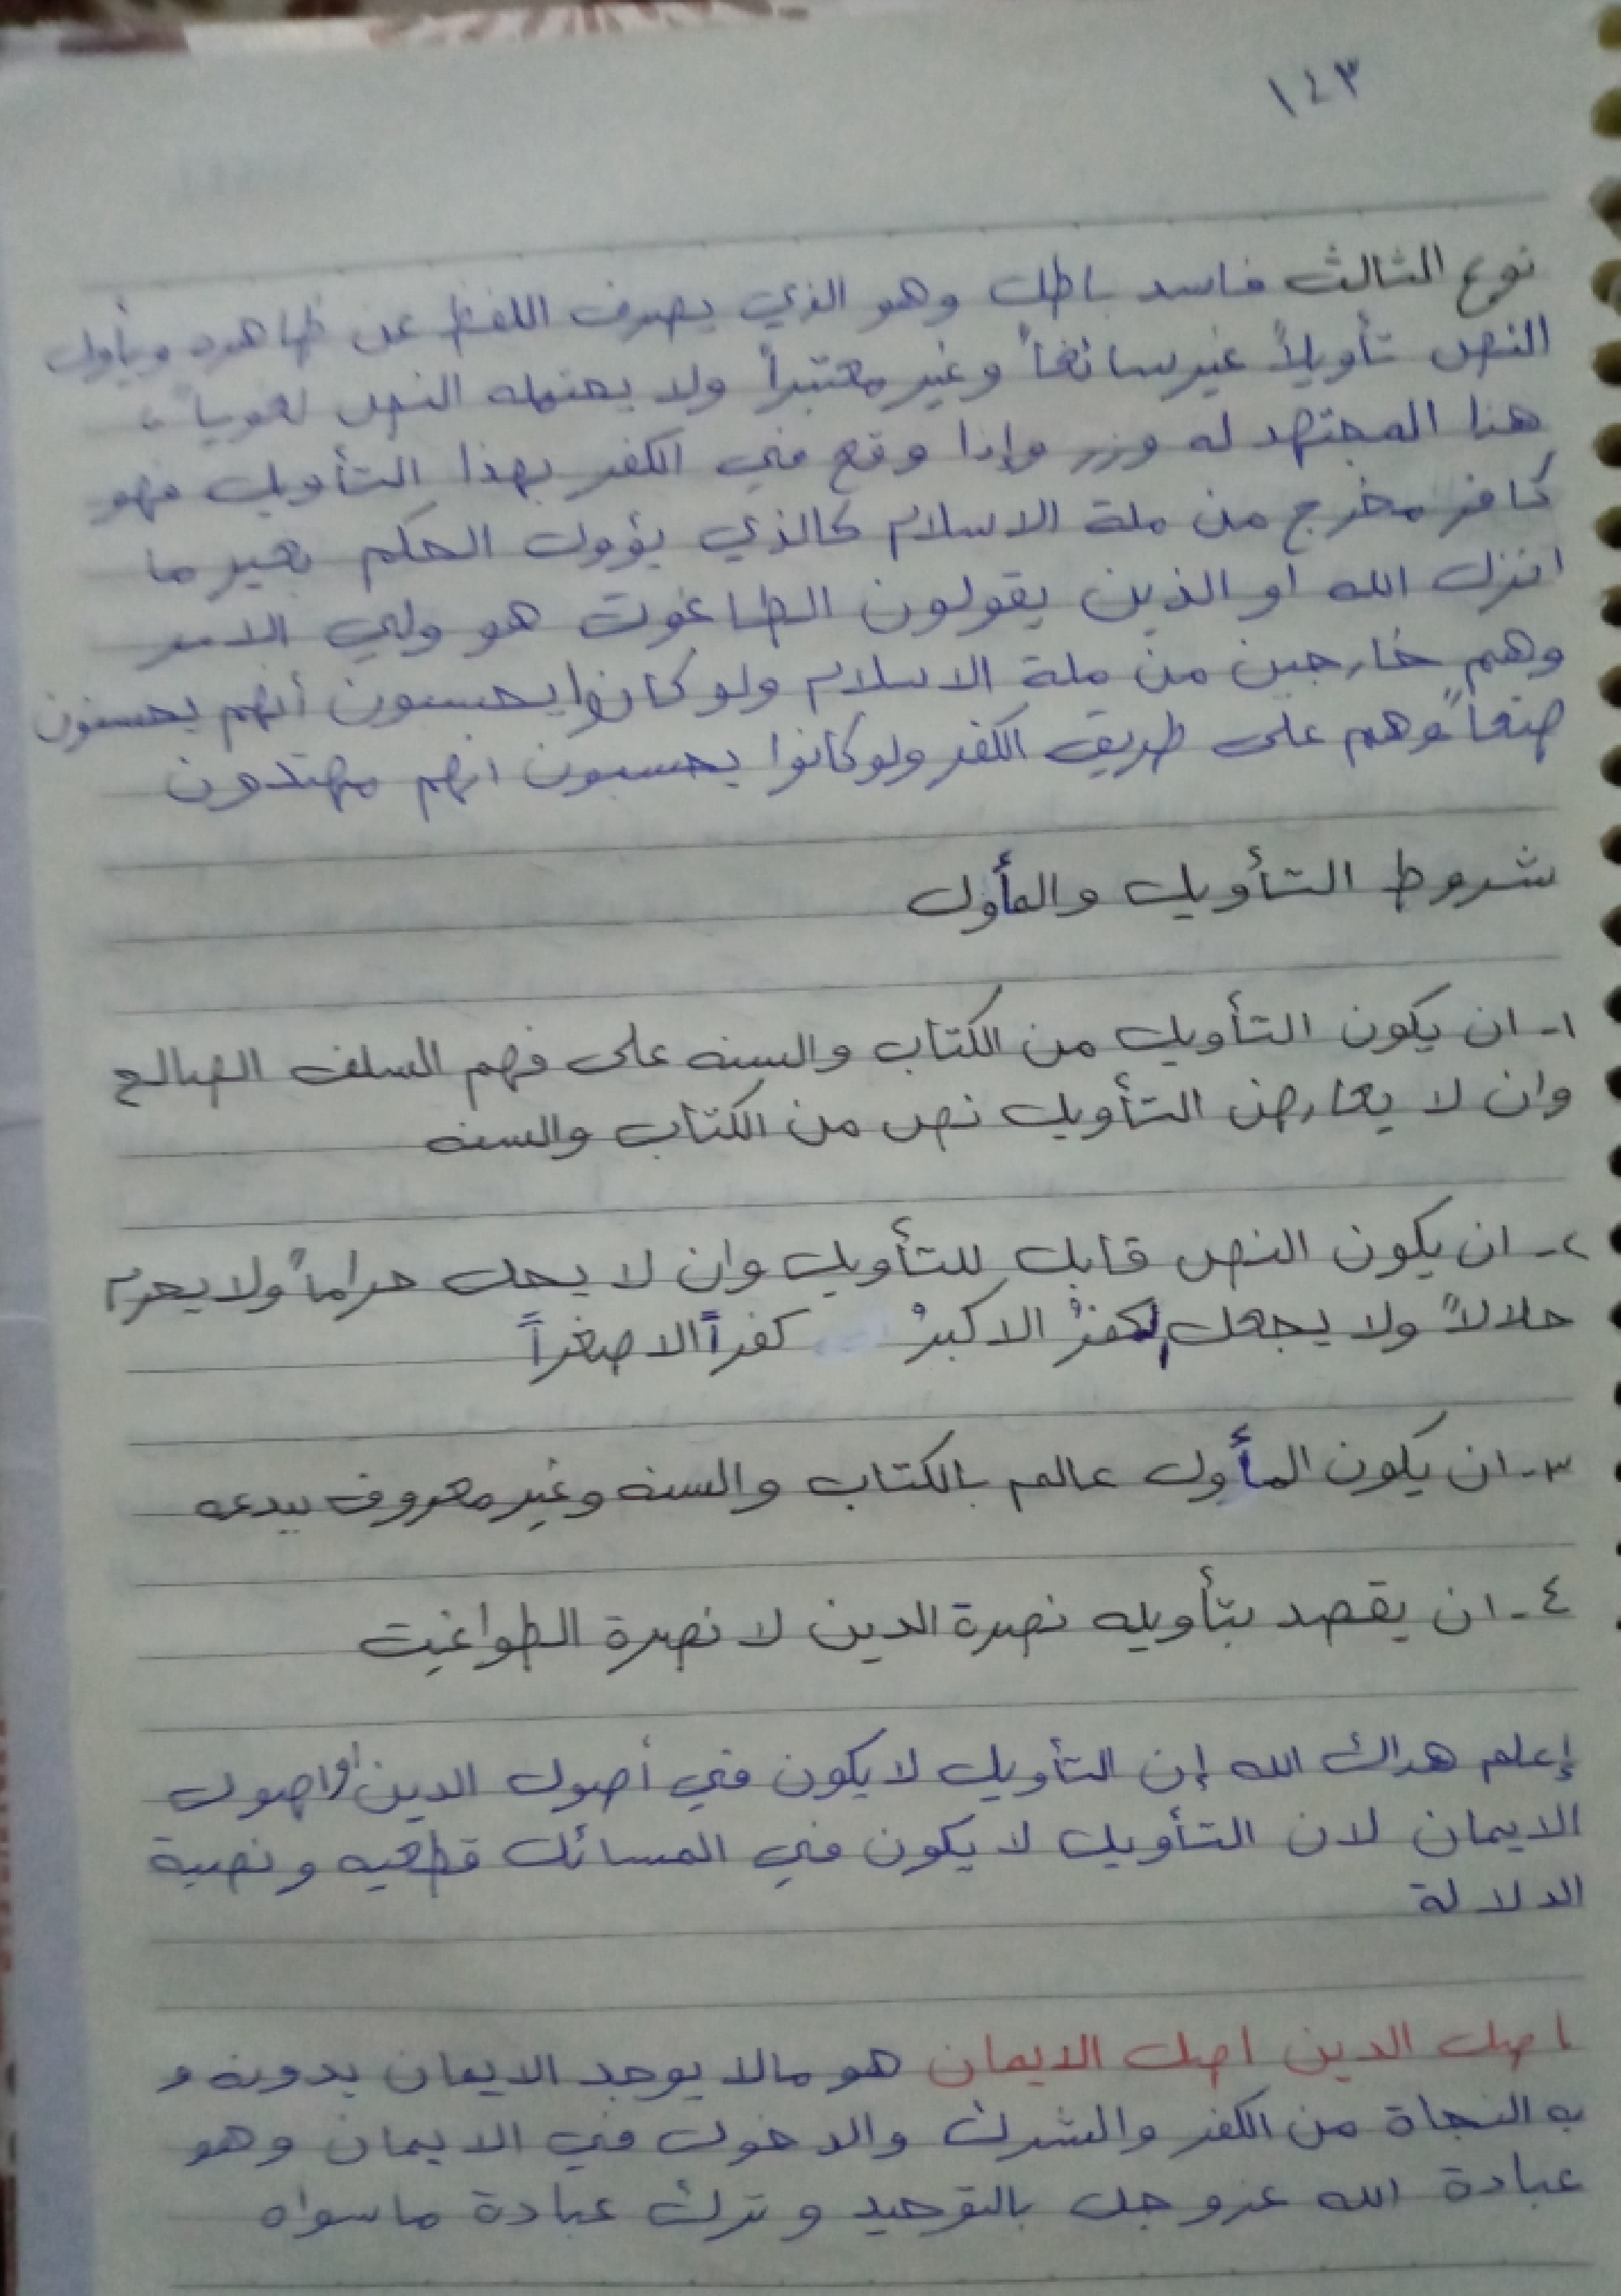 ١٤٣
نوع الثالث فاسد باطل وهو الذي يصرف اللفظ عن ظاهره ويأول
النص تأويلاً غير سائغاً وغير معتبراً ولا يحتمله النص لغوياً ،
هنا المجتهد له وزر وإذا وقع في الكفر بهذا التأويل فهو
كافر مخرج من ملة الاسلام كالذي يؤول الحكم بغير ما
انزل الله او الذين يقولون الطاغوت هو ولي الامر
وهم خارجين من ملة الاسلام ولو كانوا يحسبون أنهم يحسنون
صنعاً وهم على طريق الكفر ولو كانوا يحسبون انهم مهتدون
شروط التأويل والمأول
١- ان يكون التأويل من الكتاب والسنه على فهم السلف الصالح
وان لا يعارض التأويل نص من الكتاب والسنه
٢- ان يكون النص قابل للتأويل وان لا يحل حراماً ولا يحرم
حلالاً ولا يجعل الكفرُ الاكبرُ كفراً الاصغراً
٣- ان يكون المأول عالم بالكتاب والسنه وغير معروف ببدعه
٤- ان يقصد بتأويله نصرة الدين لا نصرة الطواغيت
إعلم هداك الله إن التأويل لا يكون في أصول الدين او اصول
الايمان لان التأويل لا يكون في المسائل قطعيه ونصية
الدلالة
اصل الدين اصل الايمان هو مالا يوجد الايمان بدونه و
به النجاة من الكفر والشرك والدخول في الايمان وهو
عبادة الله عزوجل بالتوحيد وترك عبادة ماسواه